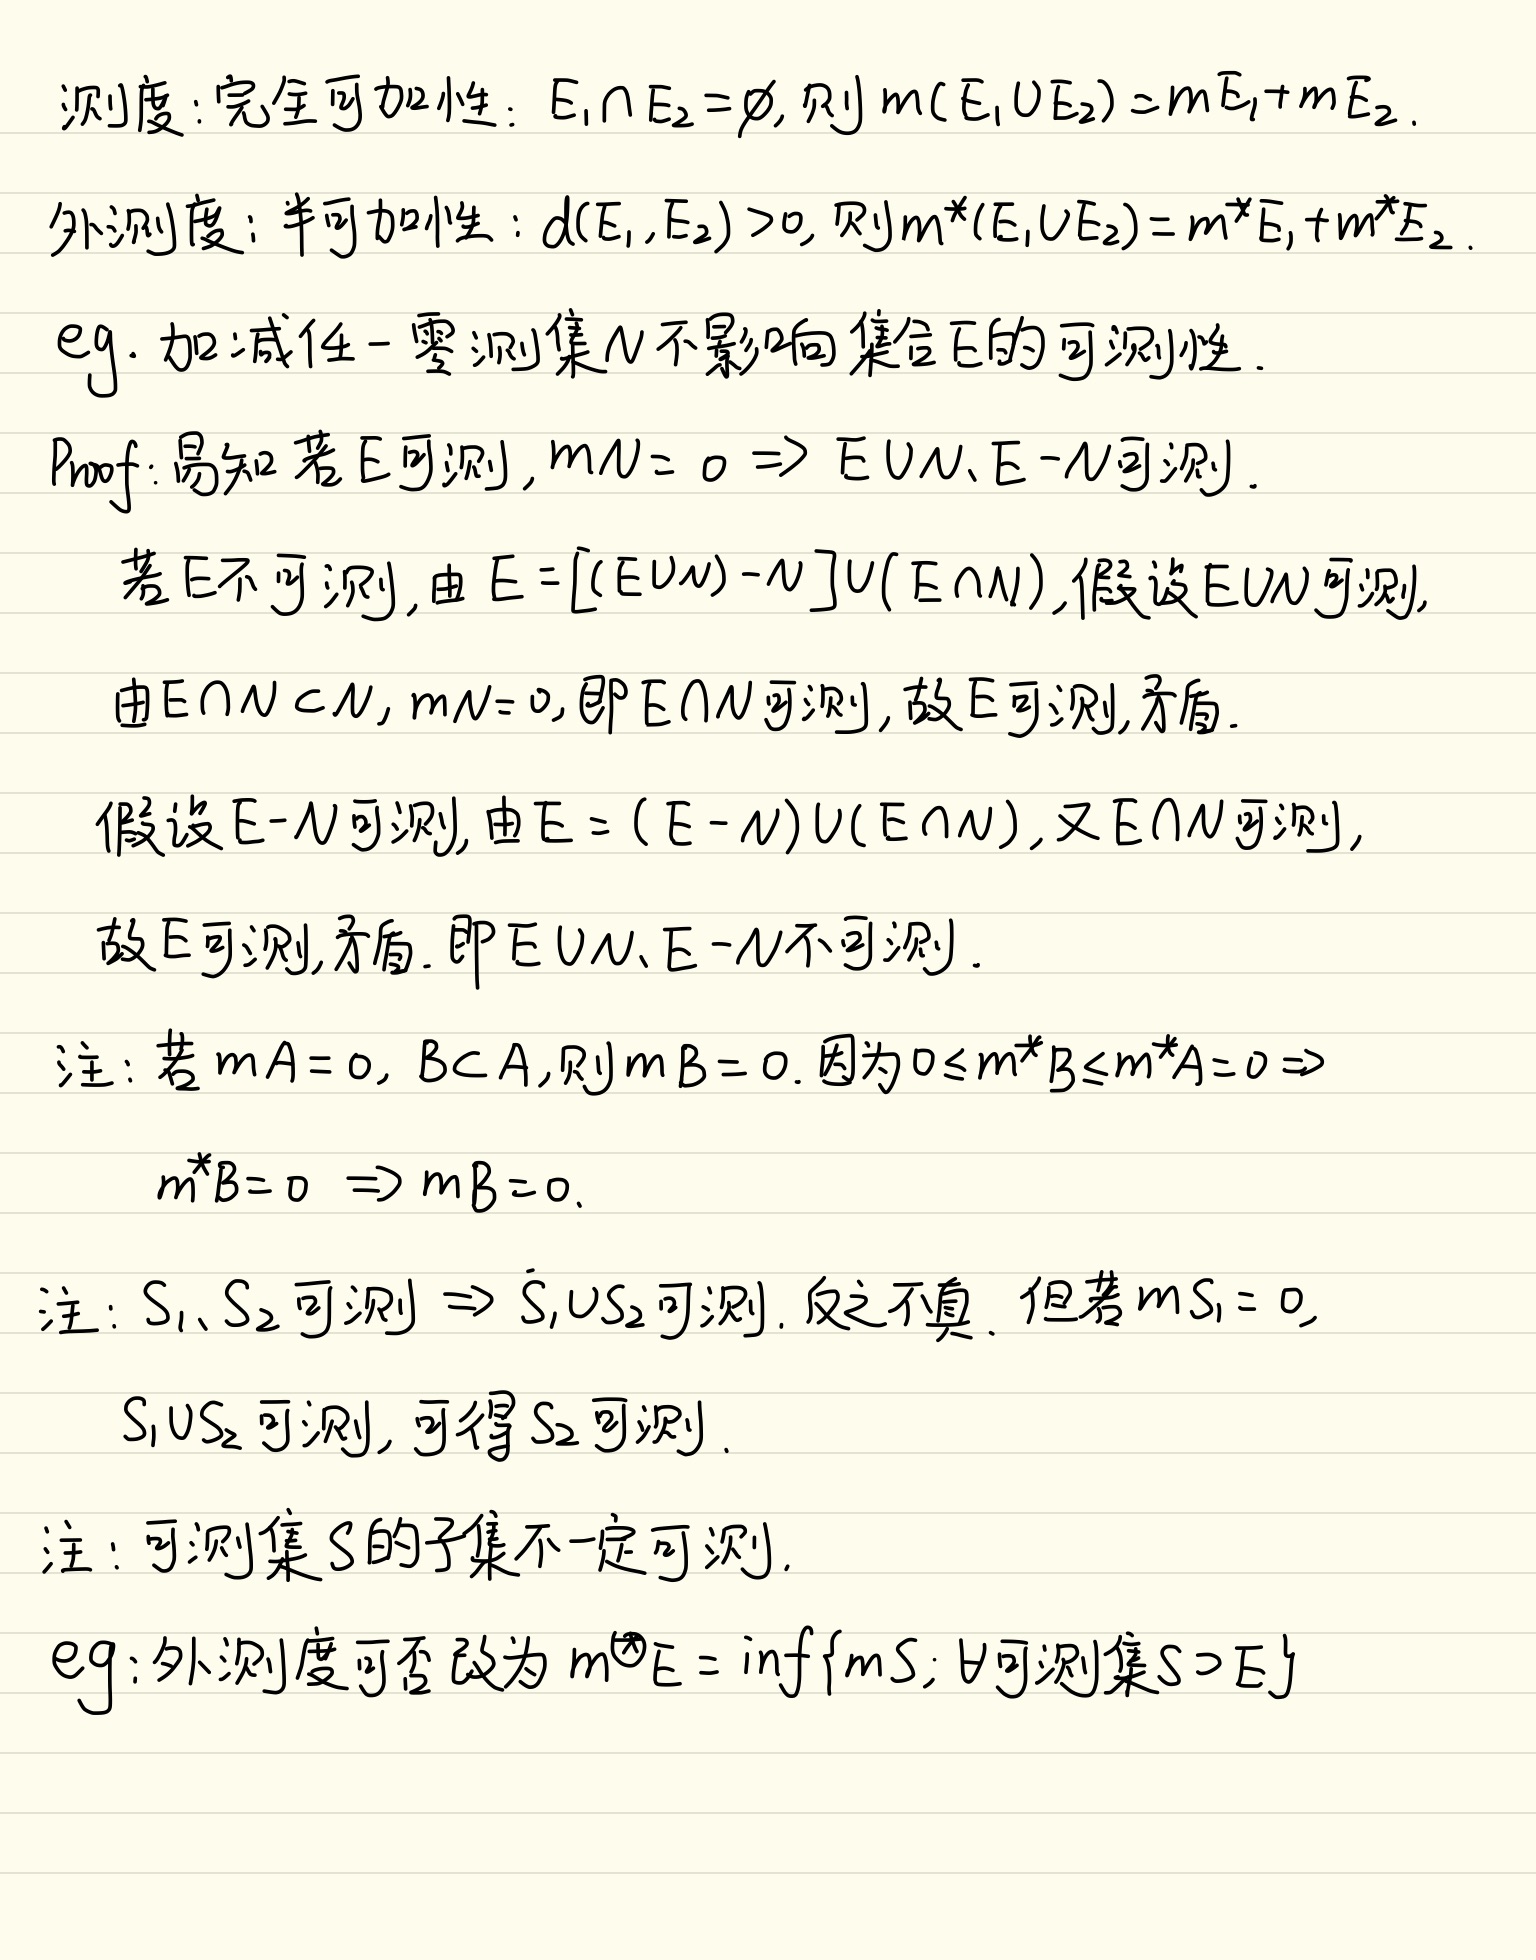 测度:完全可加性: E₁∩E₂=∅,则m(E₁∪E₂)=mE₁+mE₂.
外测度:半可加性:d(E₁,E₂)>0,则m*(E₁∪E₂)=m*E₁+m*E₂.
eg.加减任一零测集N不影响集合E的可测性.
Proof:易知若E可测,mN=0 => E∪N、E-N可测.
若E不可测,由E=[(E∪N)-N]∪(E∩N),假设E∪N可测,
由E∩N⊂N,mN=0,即E∩N可测,故E可测,矛盾.
假设E-N可测,由E=(E-N)∪(E∩N),又E∩N可测,
故E可测,矛盾.即E∪N、E-N不可测.
注:若mA=0, B⊂A,则mB=0.因为0≤m*B≤m*A=0⇒
m*B=0 ⇒ mB=0.
注:S₁、S₂可测 ⇒ S₁∪S₂可测.反之不真.但若mS₁=0,
S₁∪S₂可测,可得S₂可测.
注:可测集S的子集不一定可测.
eg:外测度可否改为m^⊛E=inf{mS;∀可测集S⊃E}